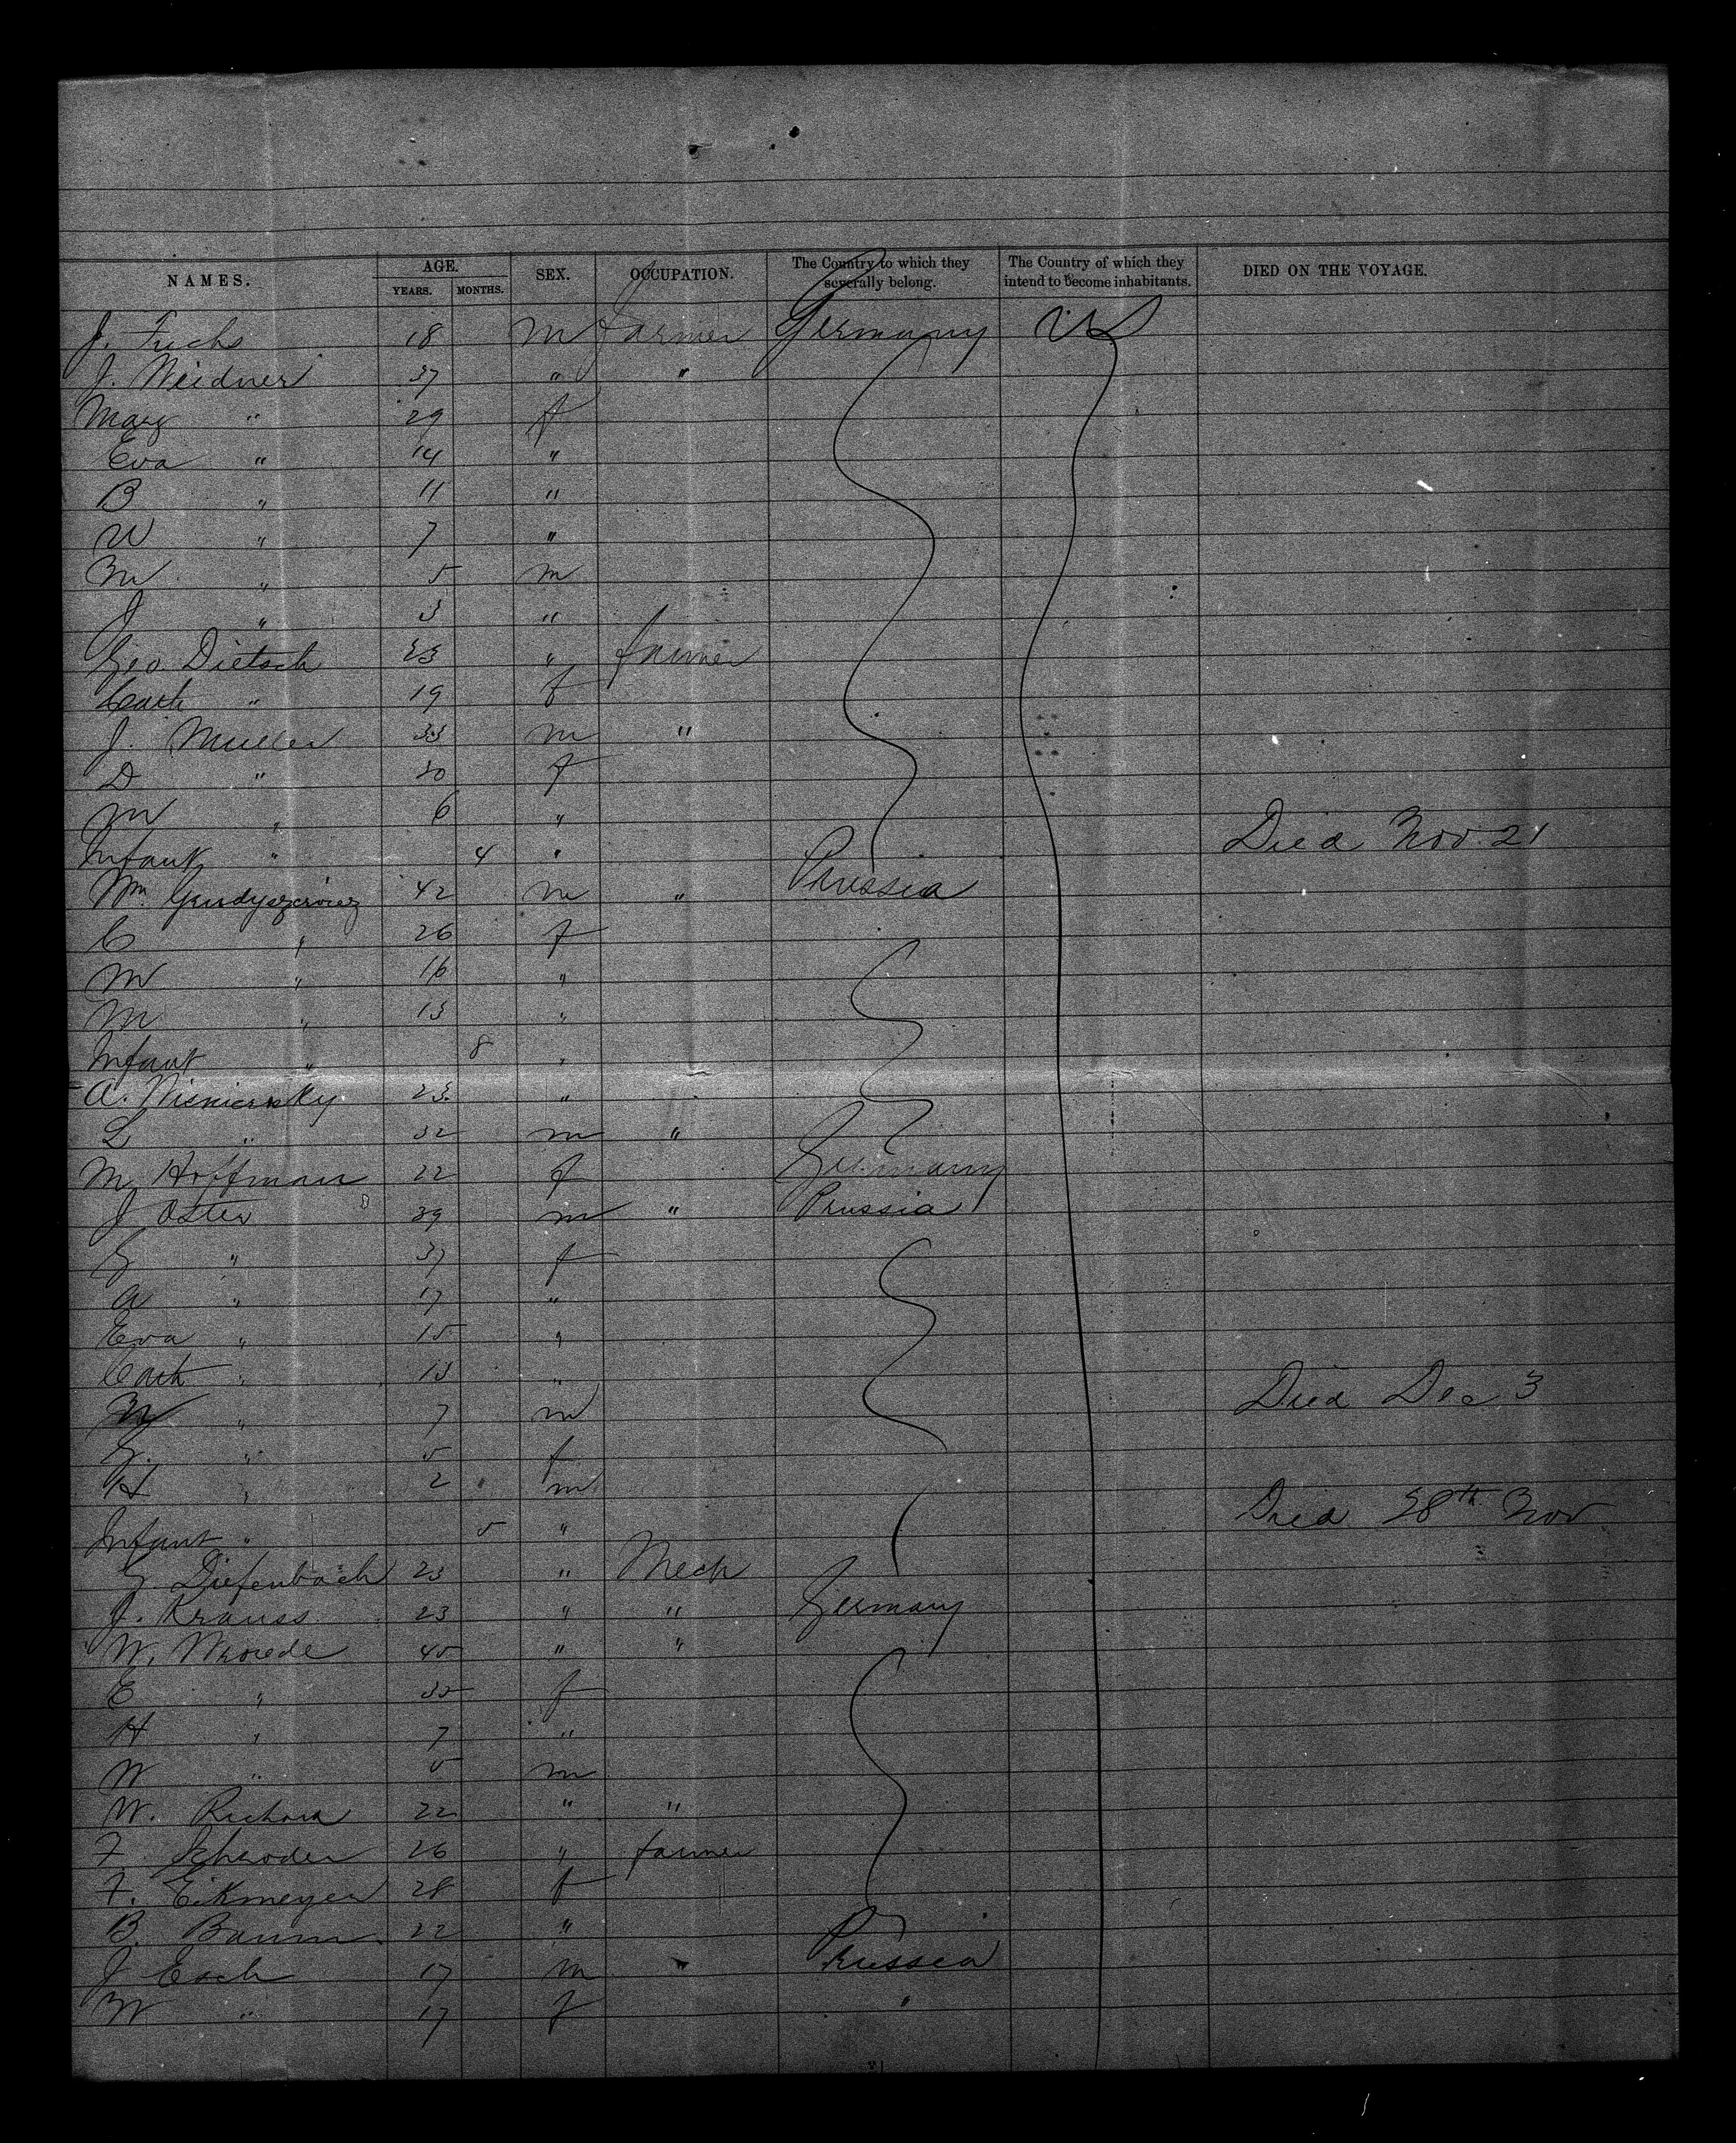 NAMES. AGE. SEX. OCCUPATION. The Country to which they severally belong. The Country of which they intend to become inhabitants. DIED ON THE VOYAGE.
YEARS. MONTHS.
J. Fuchs 18 m farmer Germany US
J. Weidner 37 " "
Mary " 29 f
Eva " 14 "
B " 11 "
W " 7 "
M " 5 m
J " 3 "
Geo Dietsch 23 " farmer
Cath " 19 f
J. Muller 33 m "
D " 30 f
M " 6 "
Infant " 4 " Died Nov 21
Wm 42 m " Prussia
C " 26 f
M " 16 "
M " 13 "
Infant " 8 "
A. 23 "
L " 32 m "
M Hoffman 22 f Germany
J Oster 39 m " Prussia
G " 37 f
A " 17 "
Eva " 15 "
Cath " 13 "
" 7 m Died Dec 3
G. " 5 f
H " 2 " m
Infant " 5 " Died 28th Nov
G. Diefenbach 23 " Mech
J. Krauss 23 " " Germany
W. 45 " "
E " 35 f
H " 7 "
W " 5 m
W. Richard 22 " "
F Schroder 26 " farmer
F. Eikmeyer 28 f
B. Baum 22 "
J Esch 17 m " Prussia
W " 17 f "